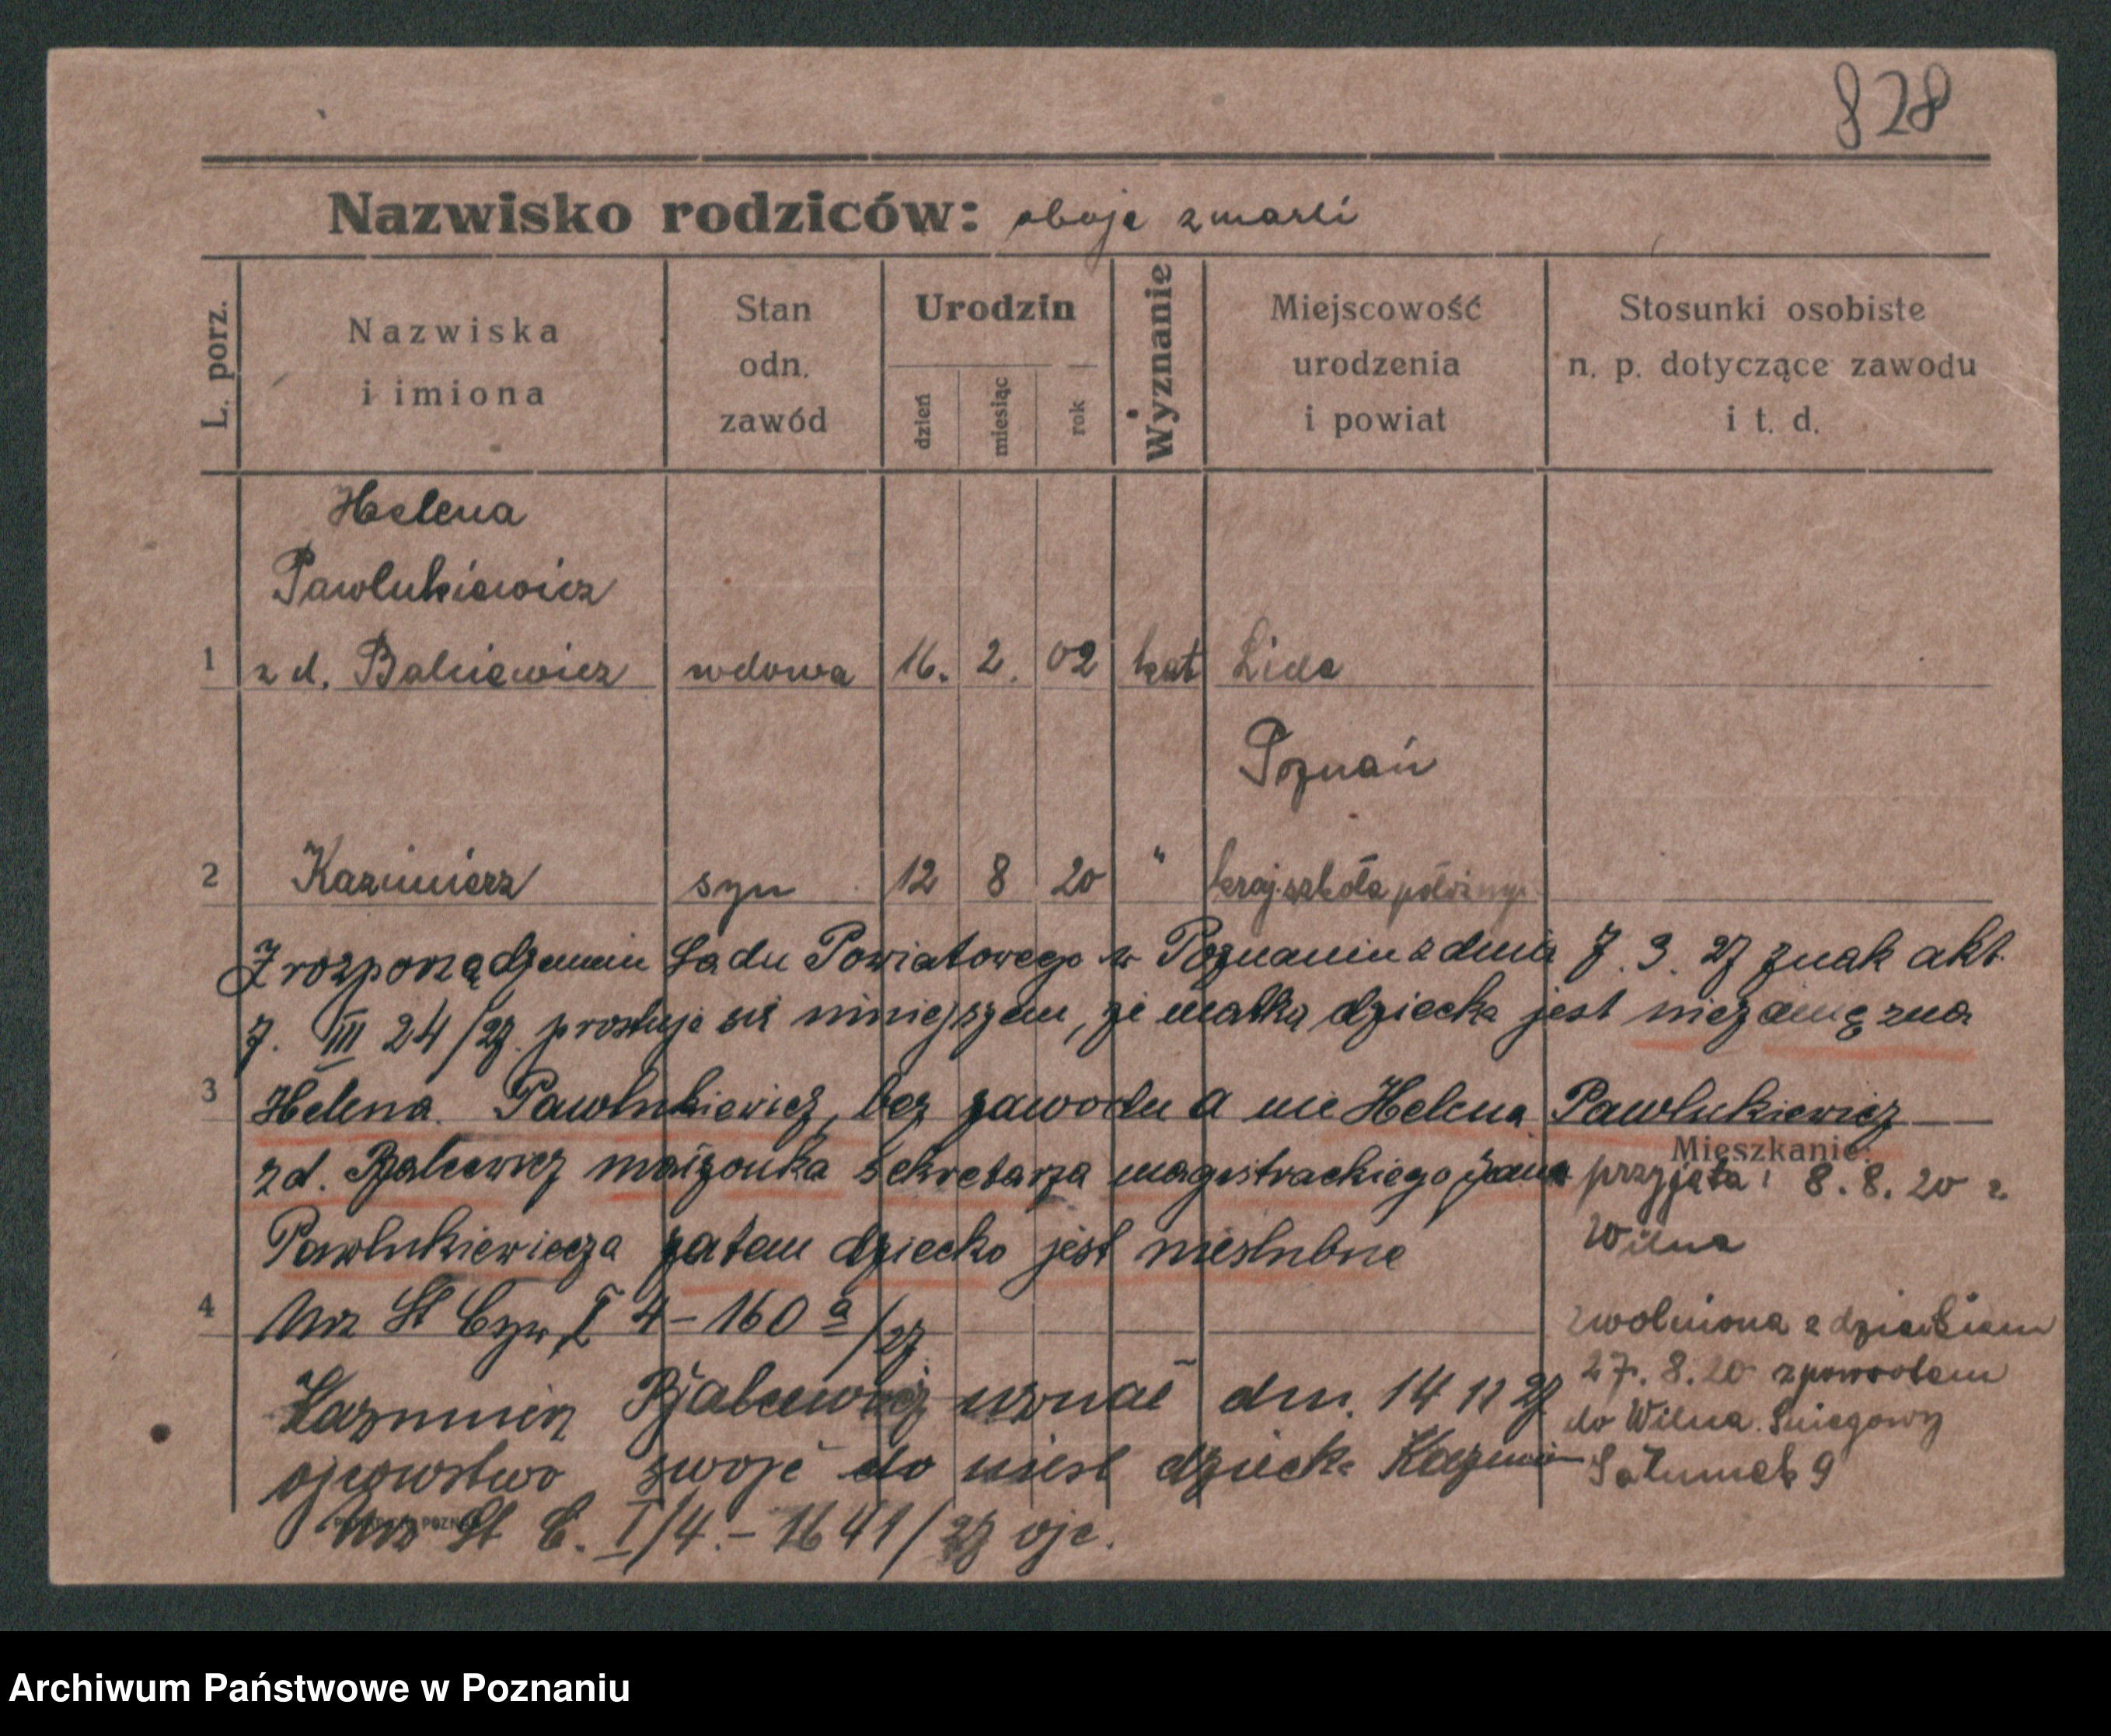 828
Nazwisko rodziców: oboje zmarli
L. porz.
Nazwiska
i imiona
Stan
odn.
zawód
Urodzin
dzień
miesiąc
rok
Wyznanie
Miejscowość
urodzenia
i powiat
Stosunki osobiste
n. p. dotyczące zawodu
i t. d.
Helena
Pawlukiewicz
1 z d. Balcewicz wdowa 16. 2. 02 kat Lida
Poznań
2 Kazimierz syn 12 8 20 " kraj. szkoła położnych
Z rozporządzenia Sądu Powiatowego w Poznaniu z dnia 7. 3. 27 znak akt.
7. III 24/27. prostuje się niniejszem, że matką dziecka jest niezamężna
3 Helena Pawlukiewicz, bez zawodu a nie Helena Pawlukiewicz
Mieszkanie:
zd. Balcewicz małżonka sekretarza magistrackiego Jana
Pawlukiewicza zatem dziecko jest nieślubne
przyjęta: 8. 8. 20 z
Wilna
4 Urz St Cyw I 4 – 160 a/27
zwolniona z dzieckiem
27. 8. 20 zpowrotem
do Wilna. Śniegowy
9
Kazimierz uznał dn. 14 11 27
ojcowstwo swoje do niesl dziecka Kazimierz
Urz St C. I/4. – 1641/27 ojc.
Archiwum Państwowe w Poznaniu